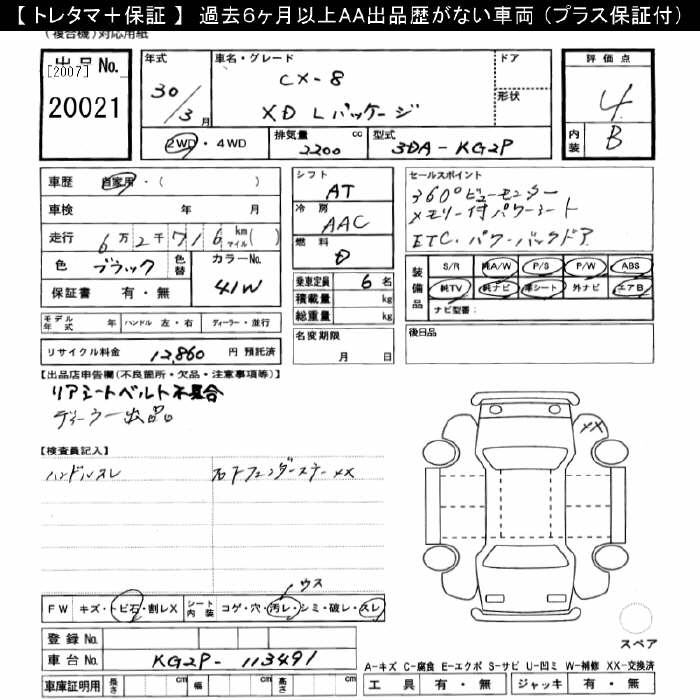 【 トレタマ＋保証 】 過去６ヶ月以上ＡＡ出品歴がない車両（プラス保証付）
(複合機)対応用紙
出品 No.
[2007]
20021
年式
30/3月
車名・グレード
CX-8
XD Lパッケージ
ドア
形状
評価点
4
内装
B
2WD・4WD
排気量 2200 cc
型式 3DA-KG2P
車歴 自家用・( )
車検 年 月
走行 6万2千716 km マイル( )
色 ブラック
色替
カラーNo. 41W
保証書 有・無
シフト AT
冷房 AAC
燃料 D
乗車定員 6 名
積載量 kg
総重量 kg
名変期限
月 日
セールスポイント
360°ビューモニター
メモリー付パワーシート
ETC・パワーバックドア
装備品
S/R 純A/W P/S P/W ABS
純TV 純ナビ 革シート 外ナビ エアB
ナビ型番:
後日品
モデル年式 年 ハンドル 左・右 ディーラー・並行
リサイクル料金 12,860 円 預託済
【出品店申告欄(不良箇所・欠品・注意事項等)】
リアシートベルト不具合
ディーラー出品
【検査員記入】
ハンドルスレ
右Fフェンダーステー XX
XX
ウス
FW キズ・トビ石・割レX シート内装 コゲ・穴・汚レ・シミ・破レ・スレ
登録 No.
車台 No. KG2P-113491
車庫証明用 長さ cm 幅 cm 高さ cm
スペア
A-キズ C-腐食 E-エクボ S-サビ U-凹ミ W-補修 XX-交換済
工具 有・無 ジャッキ 有・無